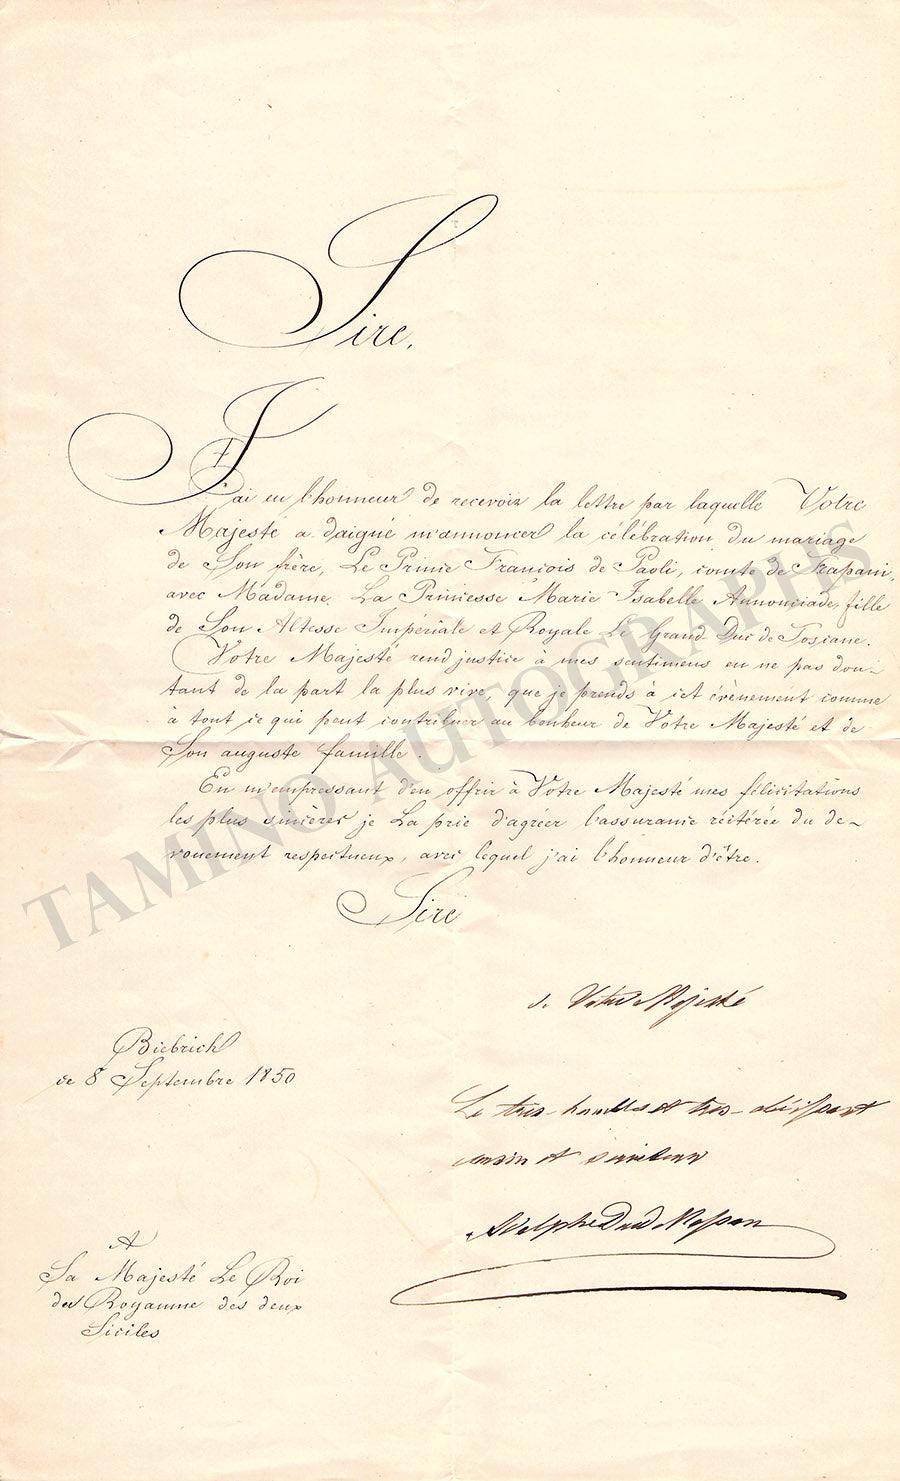 Sire,
J'ai eu l'honneur de recevoir la lettre par laquelle Votre
Majesté a daigné m'annoncer la célébration du mariage
de Son frère, Le Prince François de Paoli, comte de Trapani,
avec Madame La Princesse Marie Isabelle Annonciade, fille
de Son Altesse Impériale et Royale Le Grand-Duc de Toscane.
Votre Majesté rend justice à mes sentimens en ne pas dou-
tant de la part la plus vive, que je prends à cet évènement comme
à tout ce qui peut contribuer au bonheur de Votre Majesté et de
Son auguste famille.
En m'empressant d'en offrir à Votre Majesté mes félicitations
les plus sincères je La prie d'agréer l'assurance réitérée du dé-
vouement respectueux, avec lequel j'ai l'honneur d'être.
Sire
de Votre Majesté
Biebrich
ce 8 Septembre 1850
Le très-humble et très-obéissant
cousin et serviteur
Adolphe Duc de Nassau
A
Sa Majesté Le Roi
du Royaume des deux
Siciles
TAMINO AUTOGRAPHS